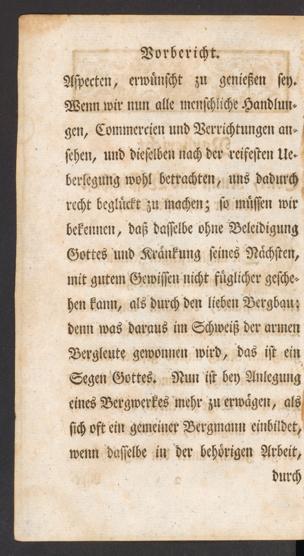 Vorbericht.
Aspecten, erwünscht zu genießen sey.
Wenn wir nun alle menschliche Handlun-
gen, Commercien und Verrichtungen an-
sehen, und dieselben nach der reifesten Ue-
berlegung wohl betrachten, uns dadurch
recht beglückt zu machen; so müssen wir
bekennen, daß dasselbe ohne Beleidigung
Gottes und Kränkung seines Nächsten,
mit gutem Gewissen nicht füglicher gesche-
hen kann, als durch den lieben Bergbau:
denn was daraus im Schweiß der armen
Bergleute gewonnen wird, das ist ein
Segen Gottes. Nun ist bey Anlegung
eines Bergwerkes mehr zu erwägen, als
sich oft ein gemeiner Bergmann einbildet,
wenn dasselbe in der behörigen Arbeit,
durch